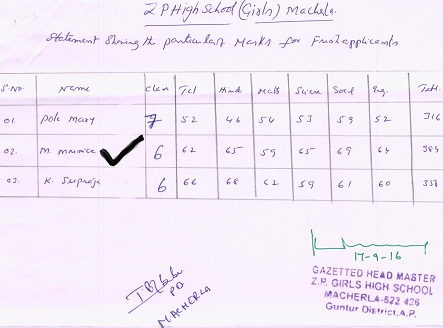 Z P High School (Girls) Macherla.
Statement Showing the particulars Marks for Fresh applicants
S.No. Name Class Tel Hindi Maths Science Social Eng. Totl.
01. Pole Mary 7 52 46 54 53 59 52 316
02. M. 6 62 65 59 65 69 64 384
03. K. Supraja 6 66 68 62 59 61 60
PO
MACHERLA
17-9-16
GAZETTED HEAD MASTER
Z.P. GIRLS HIGH SCHOOL
MACHERLA-522 426
Guntur District.A.P.